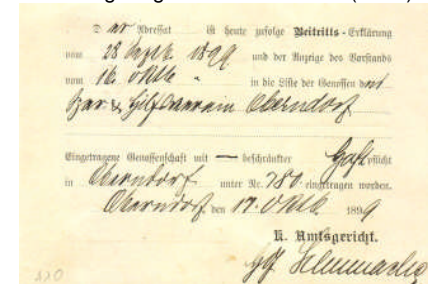 Der Adressat ist heute zufolge Beitritts-Erklärung
vom 28 Septb. 1899 und der Anzeige des Vorstands
vom 16. Oktb. " in die Liste der Genossen des
Spar & Hilfsverein Oberndorf
Eingetragene Genossenschaft mit — beschränkter Haftpflicht
in Oberndorf unter Nr. 780 eingetragen worden.
Oberndorf, den 17. Oktb. 1899
K. Amtsgericht.